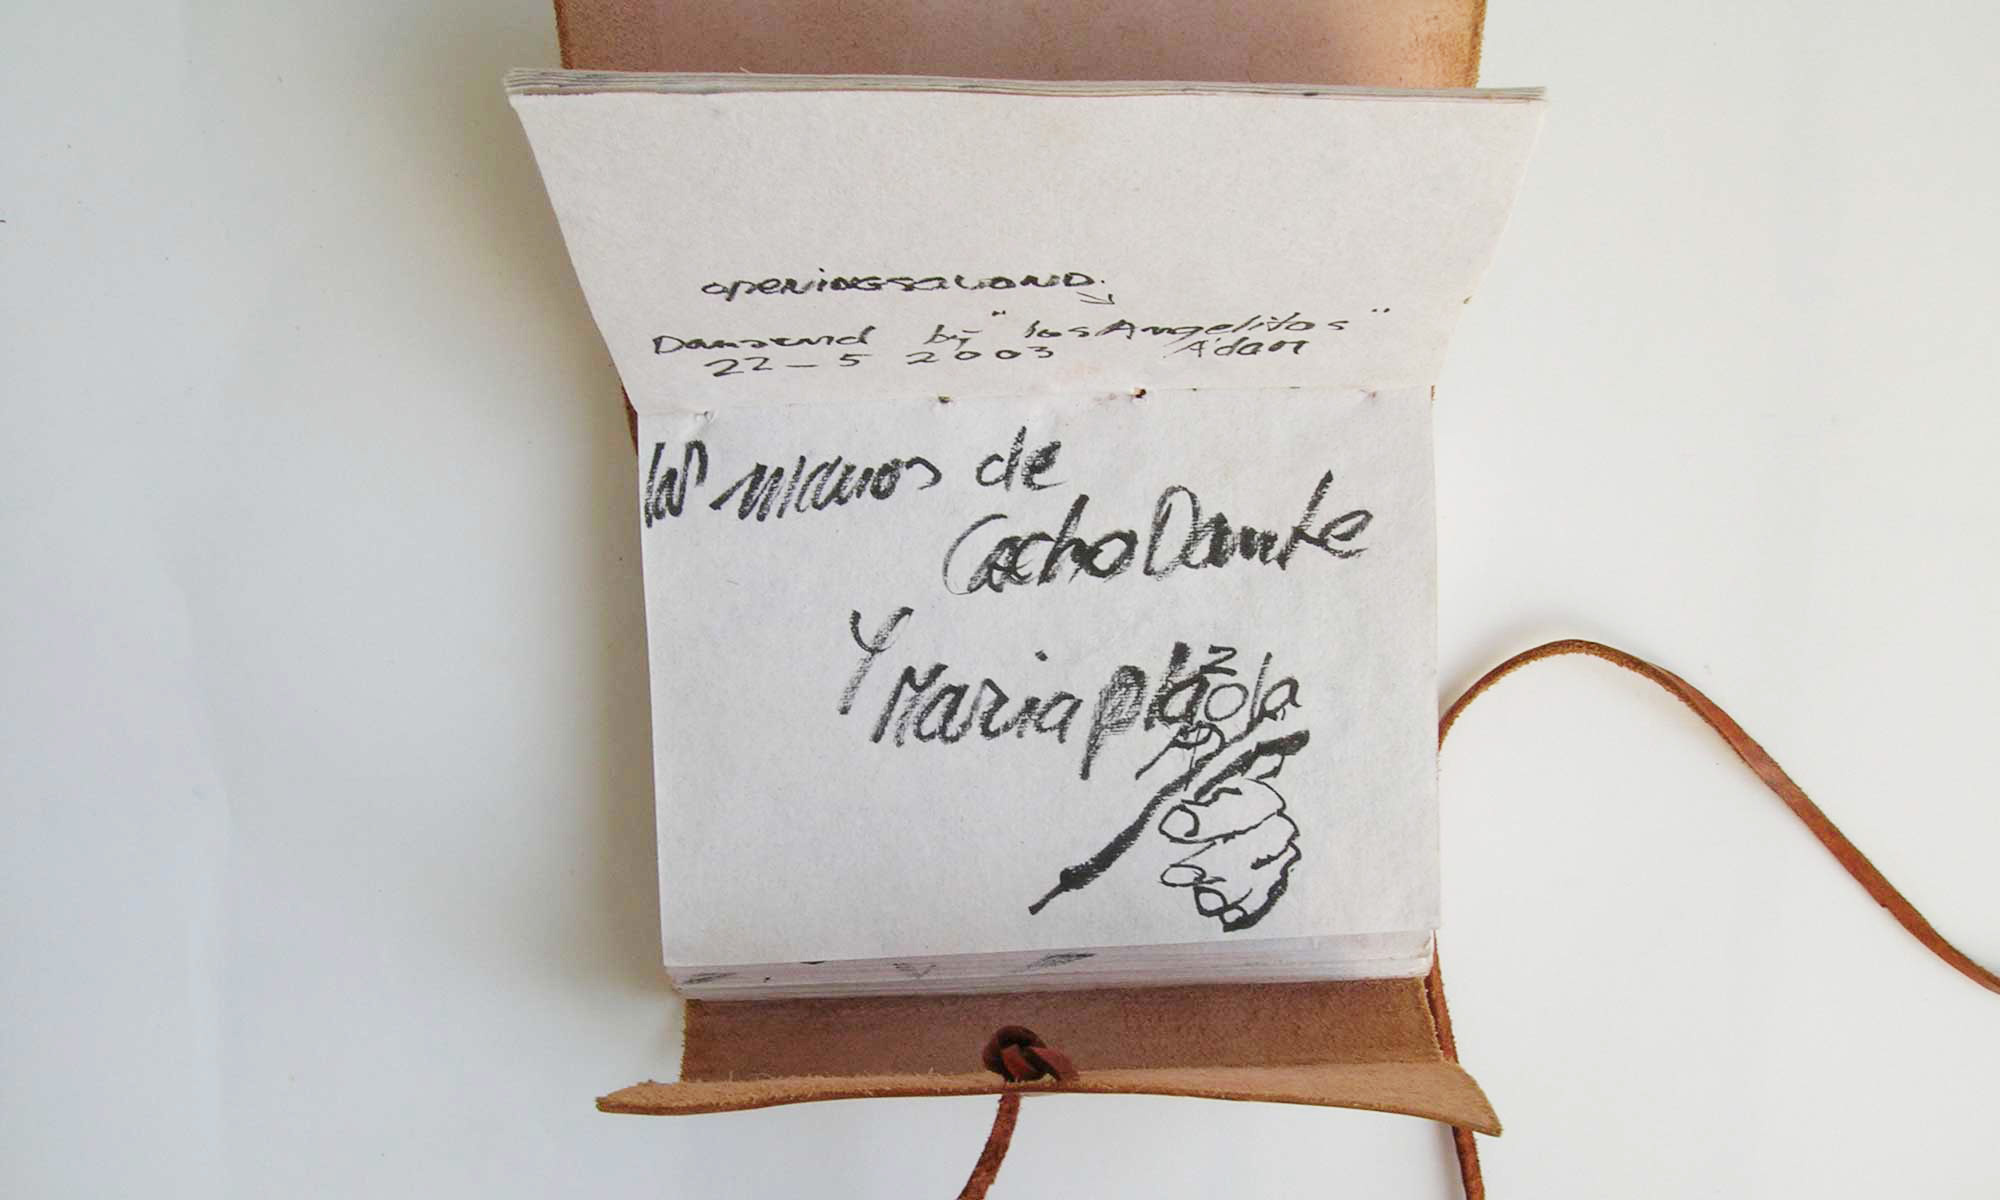 openingsavond.
Dansend bij "los Angelitos"
22-5 2003 A'dam
las manos de
Cacho Dante
Y
Maria plazola